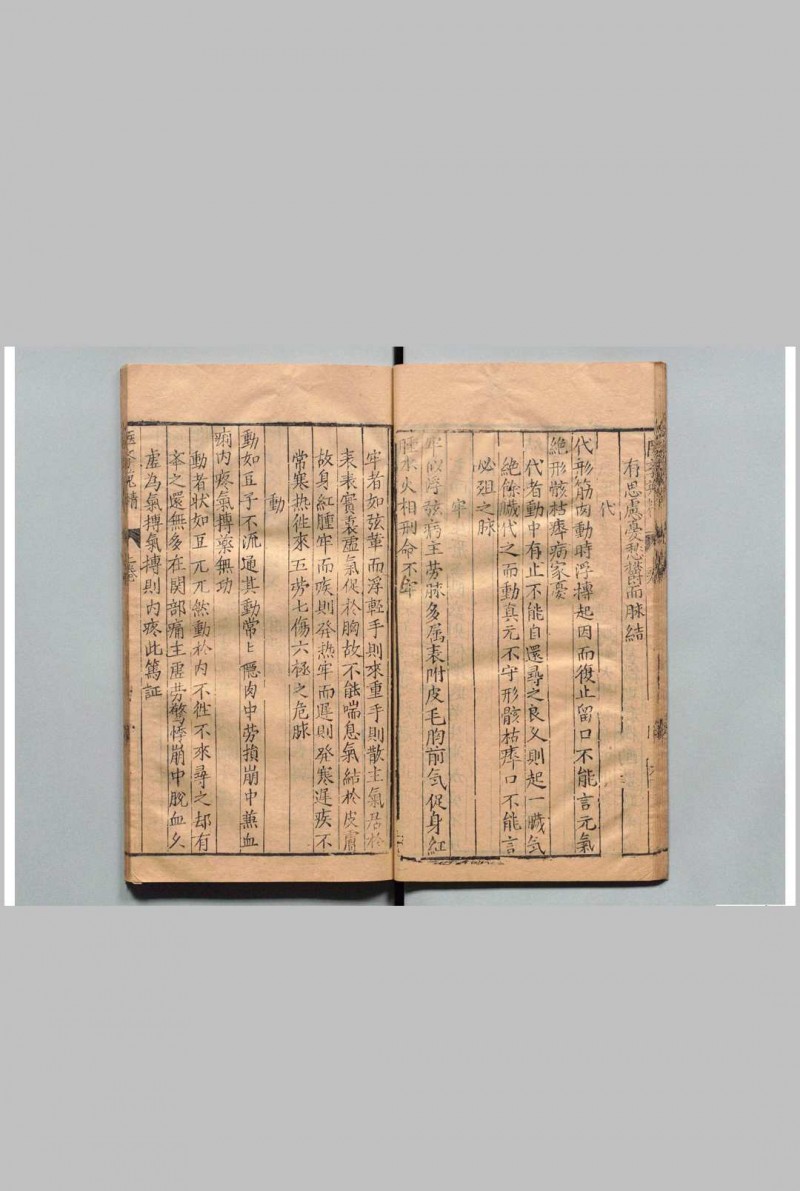 有思慮憂愁鬱而脉結
代
代形筋肉動時浮摶起因而復止留口不能言元氣
絶形骸枯瘁病家憂
代者動中有止不能自還尋之良乆則起一臓气
絶他臓代之而動真元不守形骸枯瘁口不能言
必殂之脉
牢
牢似浮弦病主勞脉多属表附皮毛胸前气促身紅
腫水火相刑命不牢
牢者如弦葦而浮輕手則來重手則散主氣居於
表表實裏虚氣促於胸故不能喘息氣結於皮膚
故身紅腫牢而疾則發热牢而遲則發寒遲疾不
常寒热徃來五劳七傷六極之危脉
動
動如豆乎不流通其動常〻隱肉中劳損崩中蕪血
痢内疼氣摶藥無功
動者状如豆兀兀然動於内不徃不來尋之却有
举之還無多在関部痛主虚劳驚悸崩中脫血乆
虚為氣摶氣摶則内疼此篤証